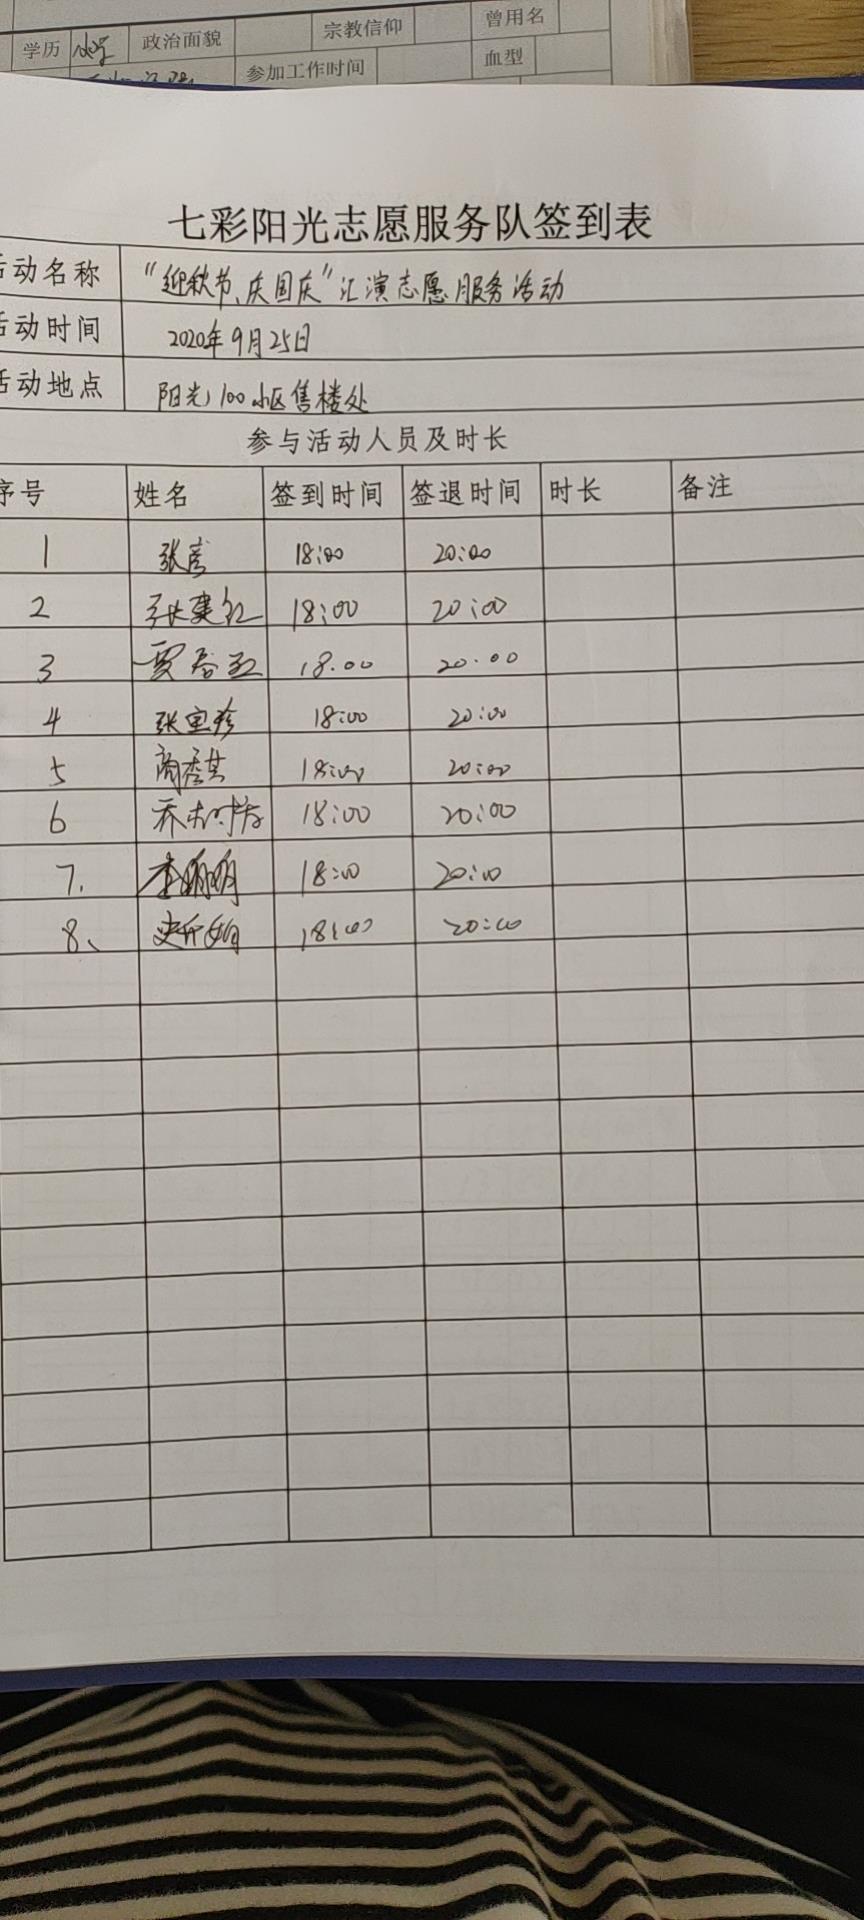 学历 小学 政治面貌 宗教信仰 曾用名
参加工作时间 血型
七彩阳光志愿服务队签到表
活动名称 "迎秋节、庆国庆"汇演志愿服务活动
活动时间 2020年9月25日
活动地点 阳光100小区售楼处
参与活动人员及时长
序号 姓名 签到时间 签退时间 时长 备注
1 18:00 20:00
2 张建红 18:00 20:00
3 贾春玉 18.00 20.00
4 张宝珍 18:00 20:00
5 18:00 20:00
6 18:00 20:00
7. 李明明 18:00 20:00
8、 18:00 20:00